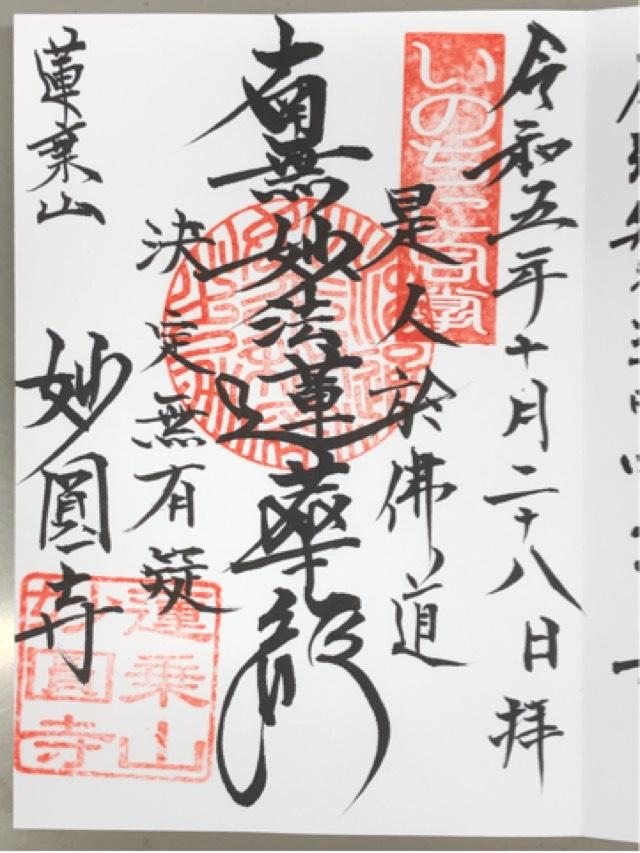 令和五年十月二十八日拝
是人於佛道
南無妙法蓮華経
決定無有疑
蓮乗山
妙圓寺
蓮乗山
妙圓寺